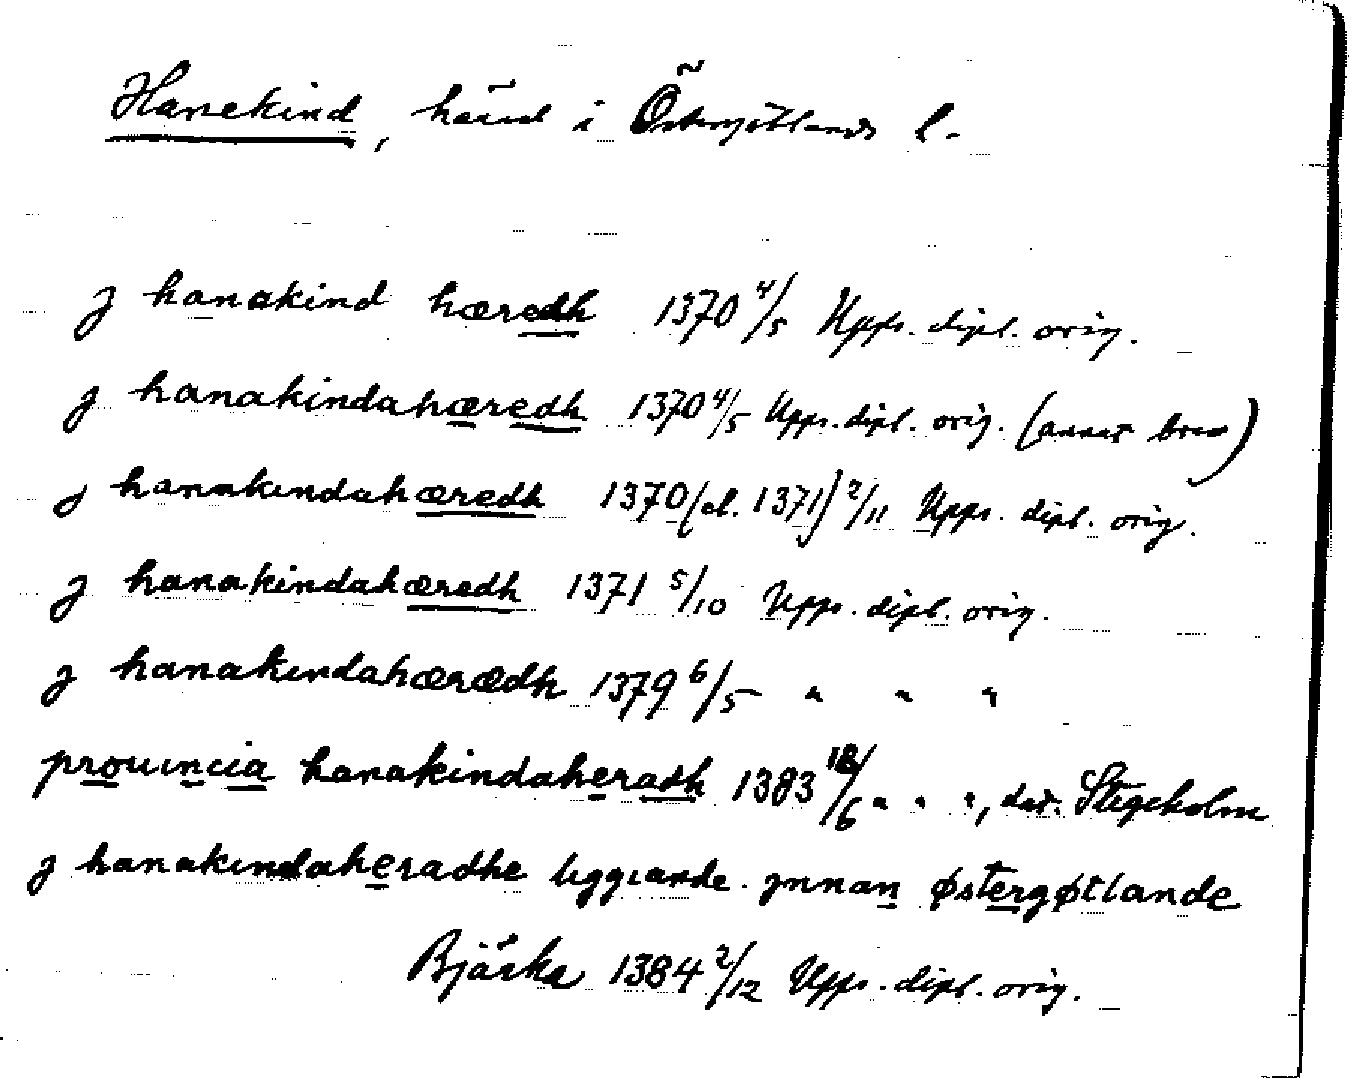 Hanekind, härad i Östergötlands l.
j hanakind hæredh 1370 4/5 Upps. dipl. orig.
j hanakindahæredh 1370 4/5 Upps. dipl. orig. (annat brev)
j hanakindahæredh 1370 (el. 1371) 2/11 Upps. dipl. orig.
j hanakindahæredh 1371 5/10 Upps. dipl. orig.
j hanakindahærædh 1379 6/5 " " "
prouincia hanakindaheradh 1383 18/6 " " ", dat. Stegeholm
j hanakindaheradhe liggiande jnnan østergøtlande
Bjärka 1384 2/12 Upps. dipl. orig.